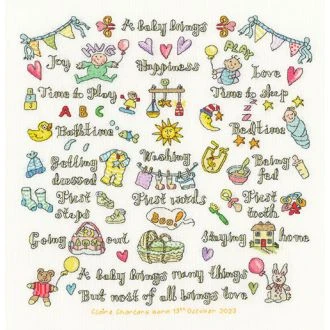 A baby brings
HUG
PLAY
Joy
Happiness
Love
Time to Play
Time to sleep
A B C
Bathtime
Bedtime
Getting dressed
Washing
Being fed
First steps
First words
First tooth
Boo
Going out
Staying home
A baby brings many things
But most of all brings love
Claire Charters Born 13th October 2023